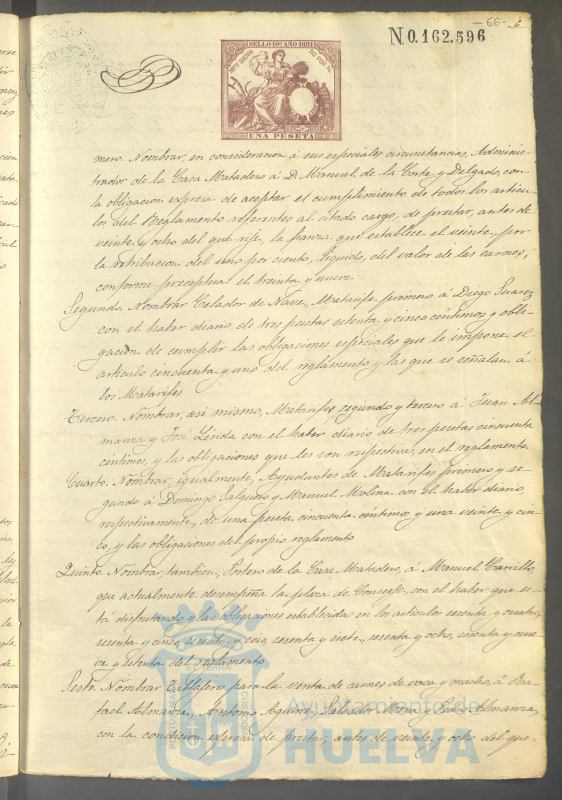 —66— 6
N.0.162.596
SELLO 10º AÑO 1881
UNA PESETA
mero. Nombrar, en consideracion á sus especiales circunstancias, Adminis-
trador de la Casa Matadero á D. Manuel de la Corte y Delgado, con
la obligacion expresa de aceptar el cumplimiento de todos los artícu-
los del Reglamento referentes al citado cargo, de prestar, antes de
veinte y ocho del que rije, la fianza que establece el veinte, por
la retribucion del uno por ciento, líquido, del valor de las carnes,
conforme preceptua el treinta y nueve
Segundo. Nombrar Celador de Nave, Matarife primero á Diego Suarez
con el haber diario de tres pesetas setenta y cinco céntimos y obli-
gacion de cumplir las obligaciones especiales que le impone el
artículo cincuenta y uno del reglamento y las que se señalan á
los Matarifes
Tercero. Nombrar, asi mismo, Matarifes segundo y tercero á Juan Al-
manza y José Lérida con el haber diario de tres pesetas cincuenta
céntimos, y las obligaciones que les son respectivas, en el reglamento.
Cuarto. Nombrar, igualmente, Ayudantes de Matarifes primero y se-
gundo á Domingo Salguero y Manuel Molina con el haber diario,
respectivamente, de una peseta cincuenta céntimos y una veinte y cin-
co, y las obligaciones del propio reglamento
Quinto. Nombrar, tambien, Portero de la Casa Matadero, á Manuel Carrillo
que actualmente desempeña la plaza de Conserje, con el haber que es-
tá disfrutando y las obligaciones establecidas en los artículos sesenta y cuatro,
sesenta y cinco, sesenta y seis, sesenta y siete, sesenta y ocho, sesenta y nue-
ve y setenta del reglamento
Sesto. Nombrar Tablajero para la venta de carnes de vaca y macho, á Ra-
fael Almanza, Antonio Aguirre, Salvador y José Almanza,
con la condicion expresa de prestar, antes de veinte y ocho del que
Ayuntamiento de
HUELVA